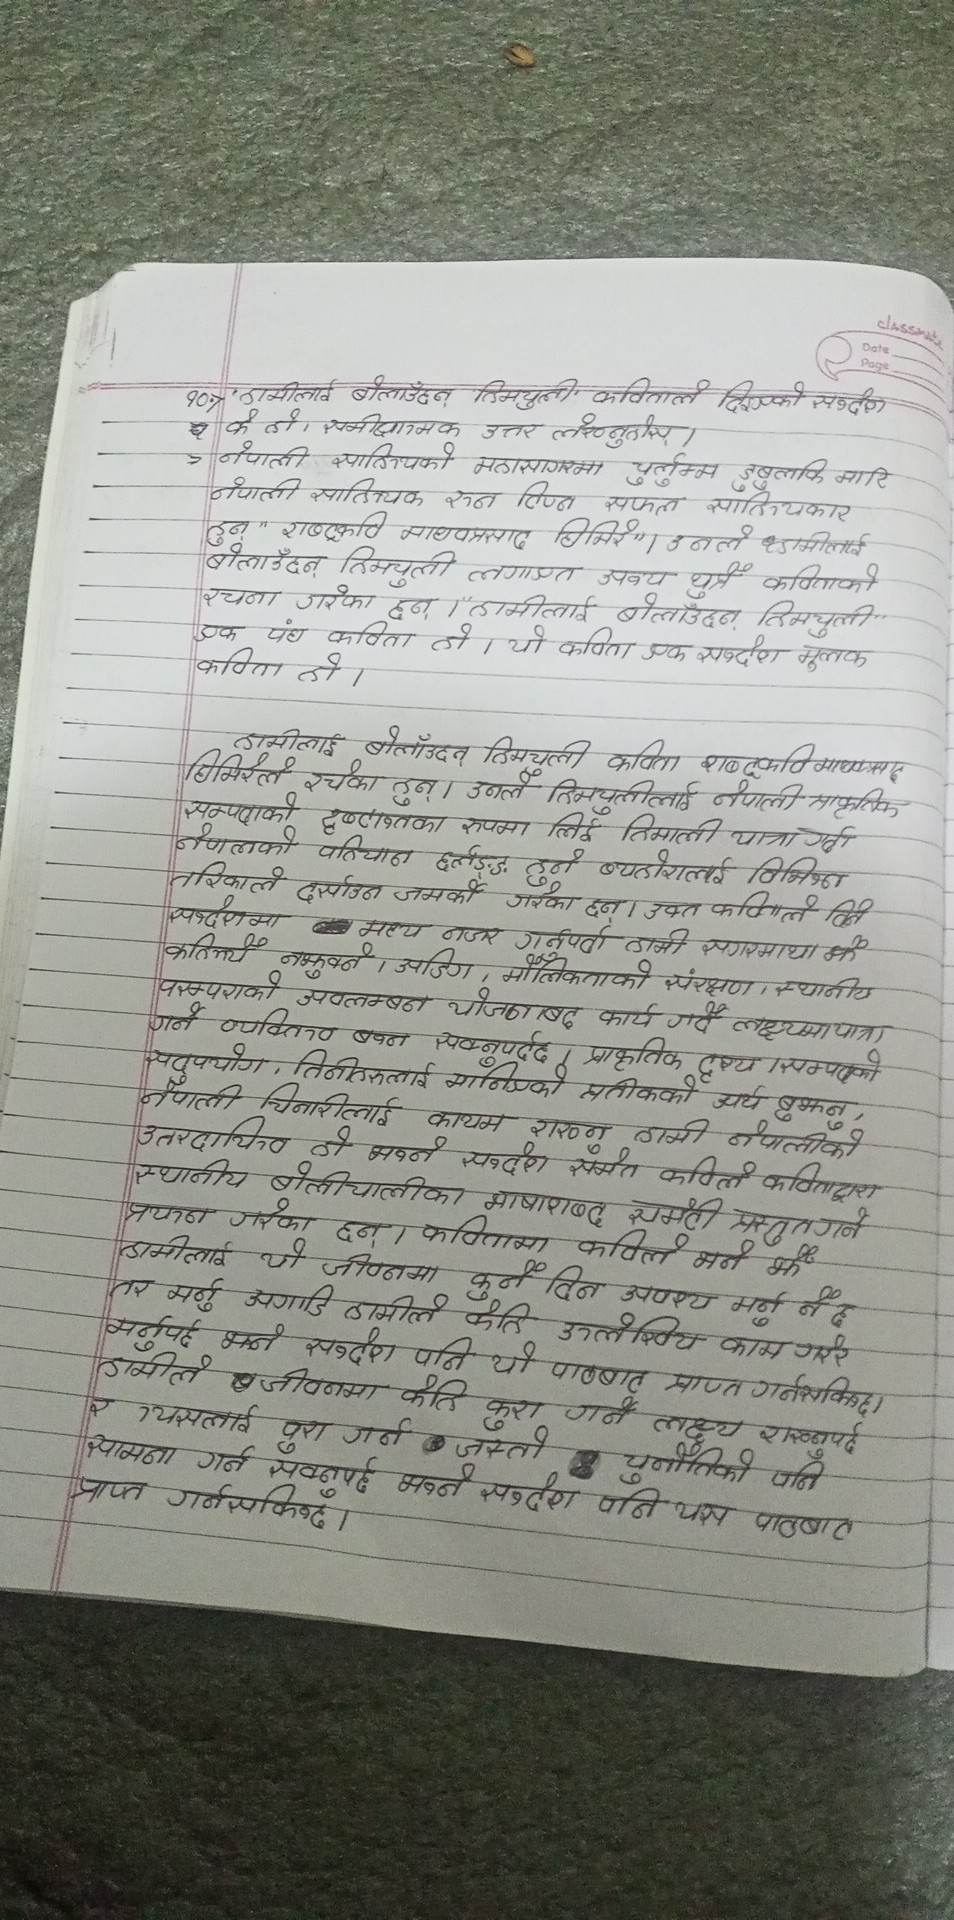 classmate
Date
Page
१०» 'हामीलाई बोलाउँछन् हिमचुली' कविताले दिएको सन्देश
के हो। समीक्षात्मक उत्तर लेख्नुहोस्।
> नेपाली साहित्यको महासागरमा चुर्लुम्म डुबुल्कि मारि
नेपाली साहित्यक रत्न टिप्न सफल साहित्यकार
हुन् "राष्ट्रकवि माधवप्रसाद घिमिरे"। उनले हामीलाई
बोलाउँछन् हिमचुली लगाएत अन्य थुप्रै कविताको
रचना गरेका छन्। "हामीलाई बोलाउँछन् हिमचुली"
एक पंद्य कविता हो। यो कविता एक सन्देश मूलक
कविता हो।
हामीलाई बोलाँउछन् हिमचुली कविता राष्ट्रकवि माधवप्रसाद
घिमिरेले रचेका हुन्। उनले हिमचुलीलाई नेपाली प्राकृतिक
सम्पदाको दृष्टान्तका रुपमा लिई हिमाली यात्रा गर्दा
नेपालको पहिचान छर्लङ्ङ हुने व्यहोरालाई विभिन्न
तरिकाले दर्साउन जमर्को गरेका छन्। उक्त कविताले दिने
सन्देशमा मध्य नजर गर्नुपर्दा हामी सगरमाथा झैं
कहिल्यै नझुक्ने। अडिग, मौलिकताको संरक्षण। स्थानीय
परम्पराको अवलम्बन योजनाबद्द कार्य गर्दै लक्ष्यमा यात्रा
गर्ने व्यक्तित्व बन्न सक्नुपर्दछ। प्राकृतिक दृश्य। सम्पदाको
सदुपयोग, तिनीहरुलाई मानिएको प्रतीकको अर्थ बुझ्नु,
नेपाली चिनारीलाई कायम राख्नु हामी नेपालीको
उत्तरदायित्व हो भन्ने सन्देश समेत कविले कविताद्वारा
स्थानीय बोलीचालीका भाषाशब्द समेटी प्रस्तुत गर्ने
प्रयत्न गरेका छन्। कवितामा कविले भने झैं
हामीलाई यो जीवनमा कुनै दिन अवश्य मर्नु नै छ
तर मर्नु अगाडि हामीले केहि उल्लेखिय काम गरेर
मर्नुपर्छ भन्ने सन्देश पनि यो पाठबाट प्राप्त गर्नसकिन्छ।
हामीले जीवनमा केहि कुरा गर्ने लक्ष्य राख्नुपर्छ
र त्यसलाई पुरा गर्न जस्तो चुनौतिको पनि
सामना गर्न सक्नुपर्छ भन्ने सन्देश पनि यस पाठबाट
प्राप्त गर्नसकिन्छ।